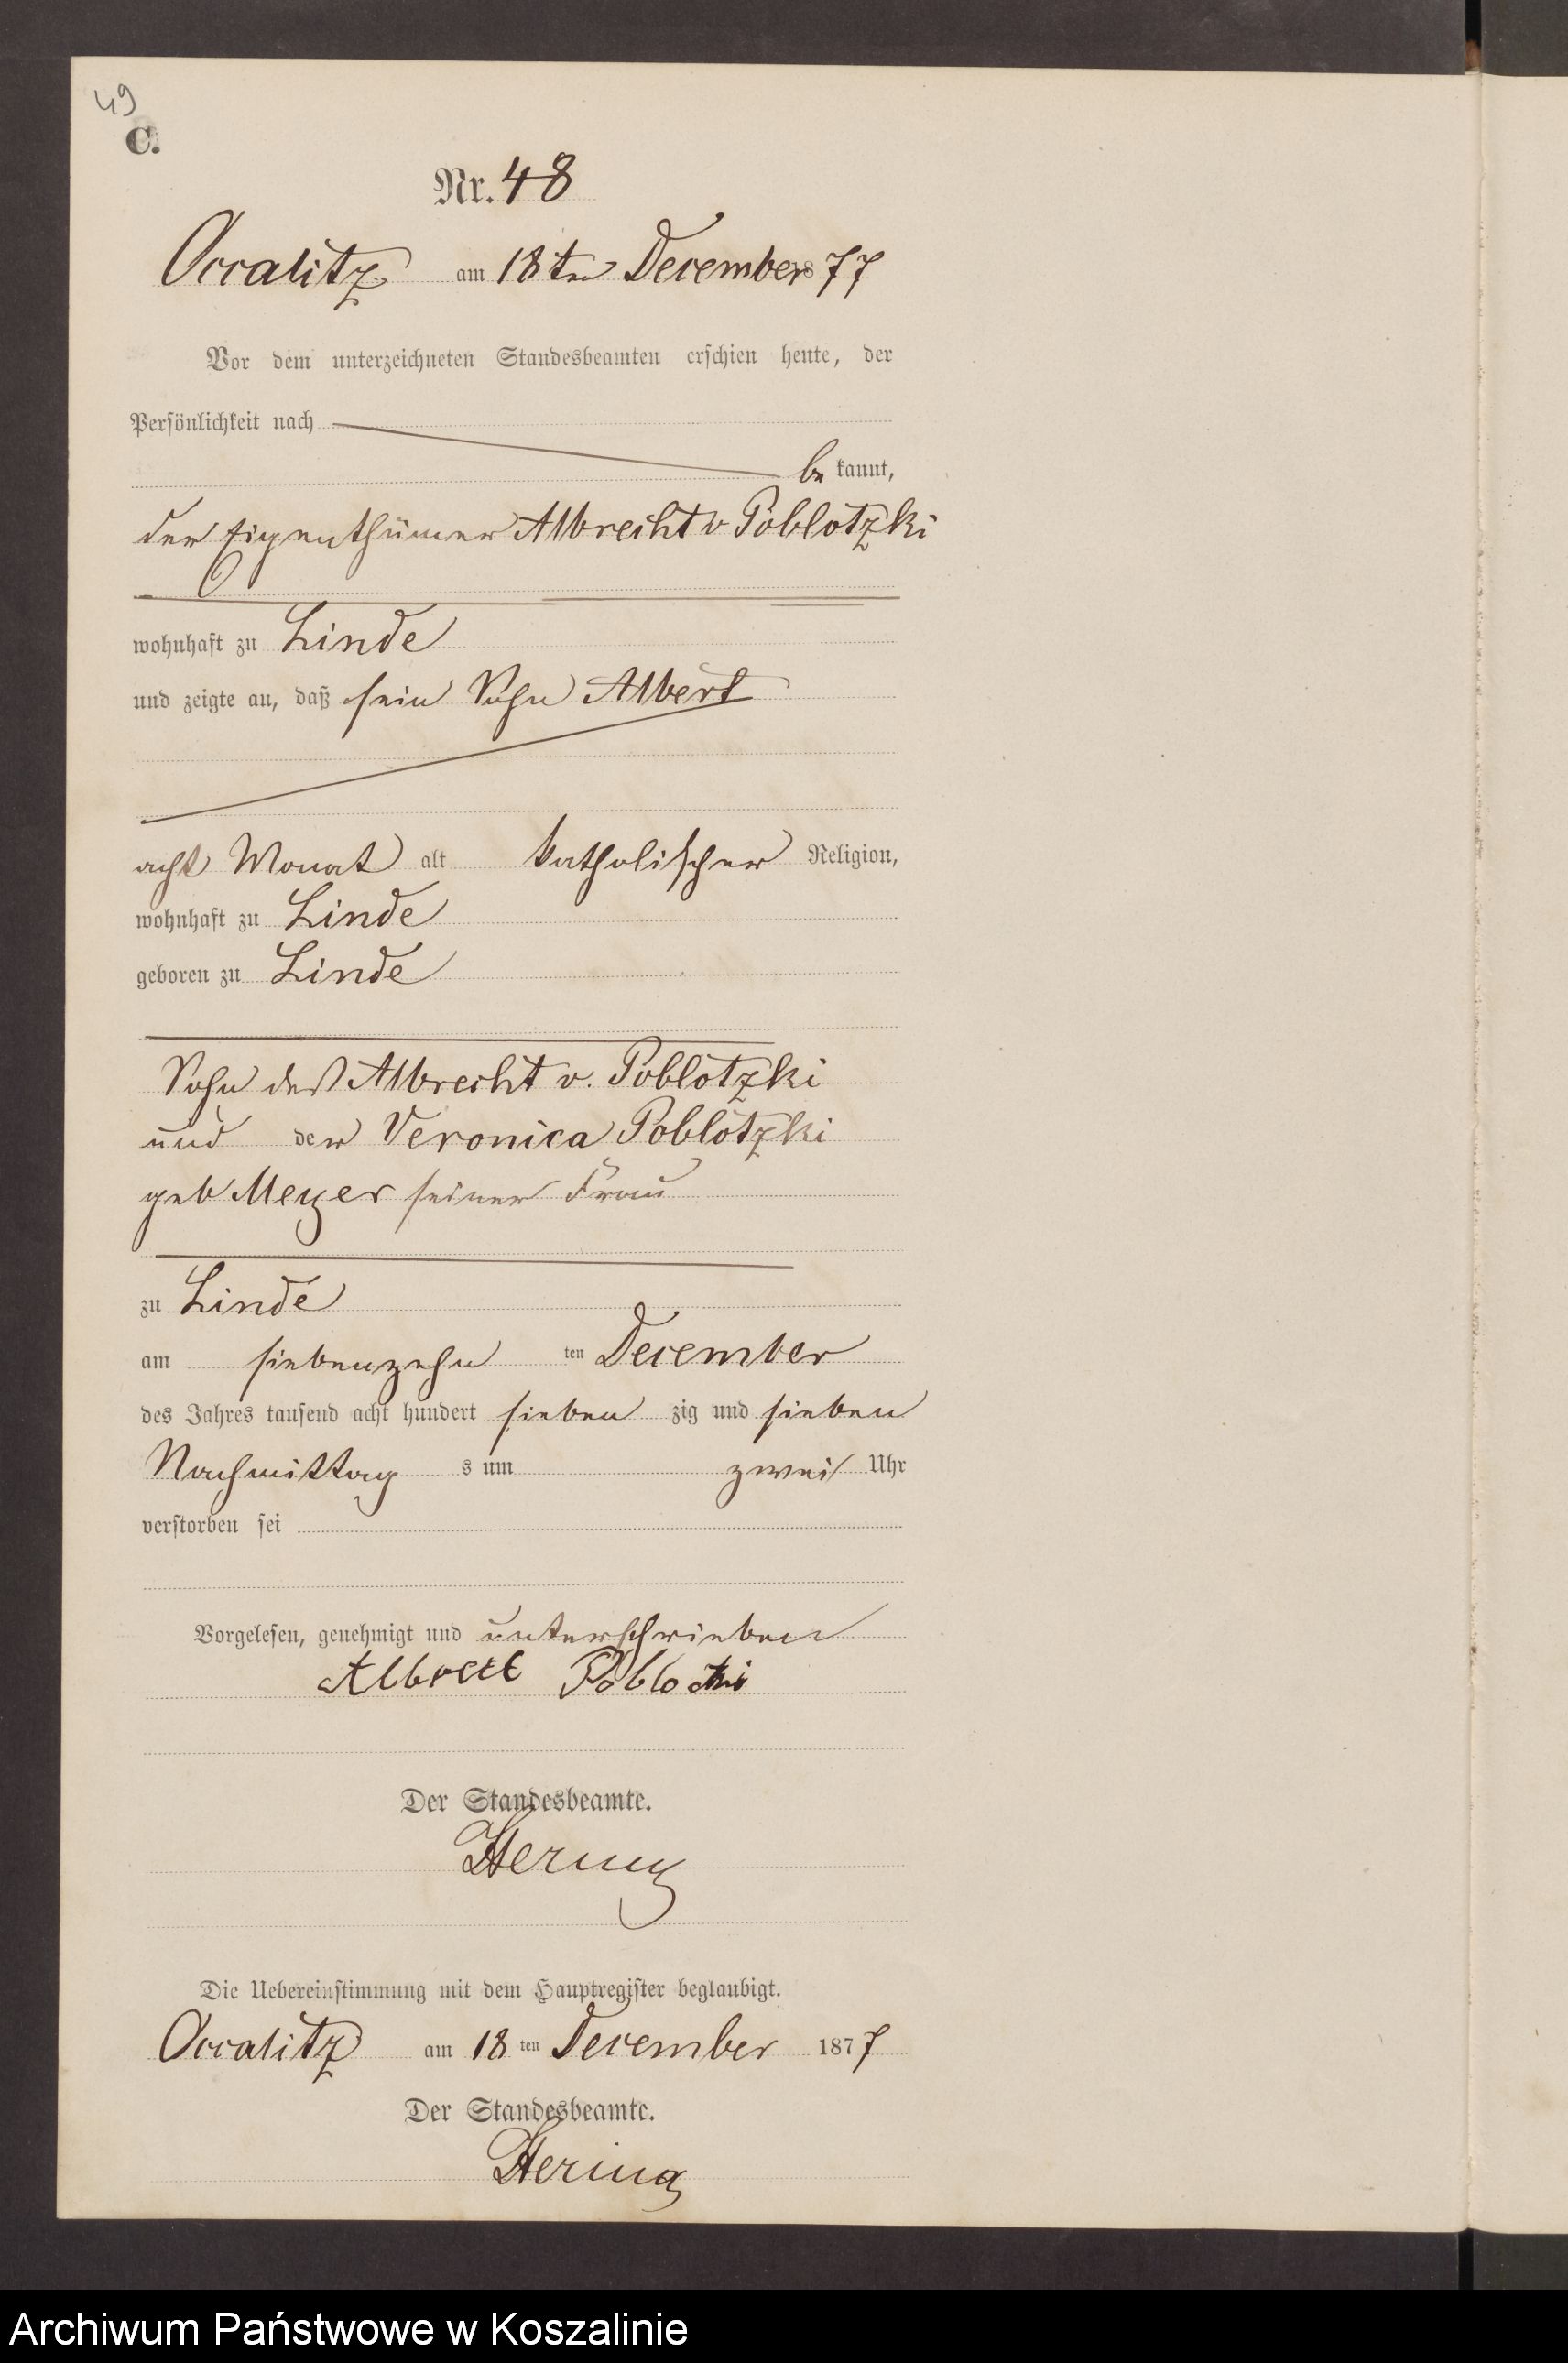 49
C.
Nr. 48
Occalitz am 18ten December 77
Vor dem unterzeichneten Standesbeamten erschien heute, der
Persönlichkeit nach
be kannt,
der Eigenthümer Albrecht v Poblotzki
wohnhaft zu Linde
und zeigte an, daß sein Sohn Albert
acht Monat alt katholischer Religion,
wohnhaft zu Linde
geboren zu Linde
Sohn des Albrecht v. Poblotzki
und der Veronica Poblotzki
geb Meyer seiner Frau
zu Linde
am siebenzehn ten December
des Jahres tausend acht hundert sieben zig und sieben
Nachmittag s um zwei Uhr
verstorben sei
Vorgelesen, genehmigt und unterschrieben
Albrect Poblotzki
Der Standesbeamte.
Hering
Die Uebereinstimmung mit dem Hauptregister beglaubigt.
Occalitz am 18 ten December 1877
Der Standesbeamte.
Hering
Archiwum Państwowe w Koszalinie